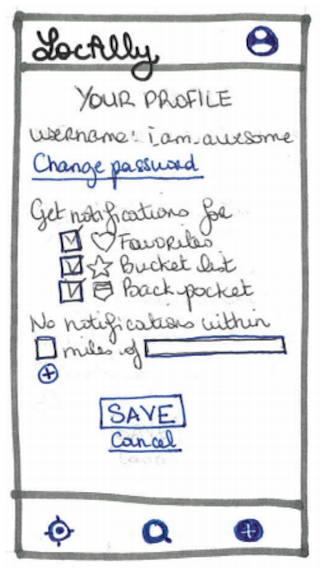 LocAlly
YOUR PROFILE
username: i.am.awesome
Change password
Get notifications for
Favorites
Bucket list
Back pocket
No notifications within
miles of
SAVE
Cancel